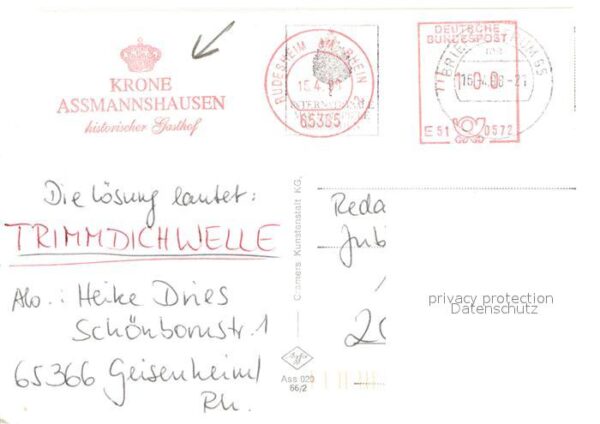 KRONE
ASSMANNSHAUSEN
historischer Gasthof
RÜDESHEIM AM RHEIN
65385
DEUTSCHE
BUNDESPOST
100
E51 0572
Die Lösung lautet:
TRIMMDICHWELLE
Abs.: Heike Dries
Schönbornstr. 1
65366 Geisenheim/
Rh.
Cramers Kunstanstalt KG,
Agfa
Ass 020
66/2
Reda
Jub
20
privacy protection
Datenschutz